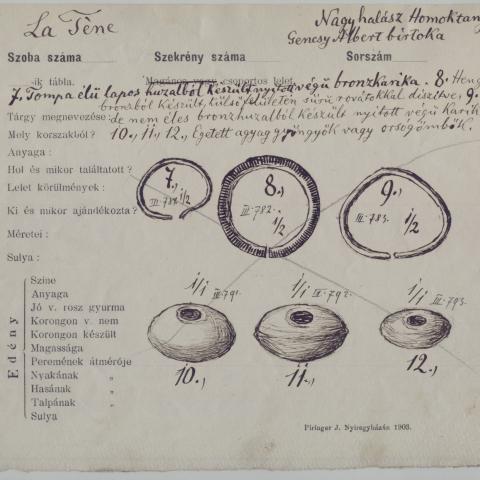 La Tène
Nagyhalász Homoktan
Gencsy Albert birtoka
Szoba száma
Szekrény száma
Sorszám
-ik tábla. Magános vagy csoportos lelet.
7., Tompa élű lapos huzalból készült nyitott végű bronzkarika. 8. Heng
bronzból készült, külső felületén sürü rovátokkal diszitve, 9.
Tárgy megnevezése: de nem éles bronzhuzalból készült nyitott végű karik
Mely korszakból? 10., 11., 12., Égetett agyag gyöngyök vagy orsógömbök.
Anyaga :
Hol és mikor találtatott?
Lelet körülmények :
Ki és mikor ajándékozta?
Méretei :
Sulya :
7., 1/2
8., III. 782. 1/2
9., III. 783. 1/2
Edény
Szine
Anyaga
Jó v. rosz gyurma
Korongon v. nem
Korongon készült
Magassága
Peremének átmérője
Nyakának „
Hasának „
Talpának „
Sulya
1/1 III. 791.
1/1 III. 792.
1/1 III. 793.
10.,
11.,
12.,
Piringer J. Nyiregyházán 1903.